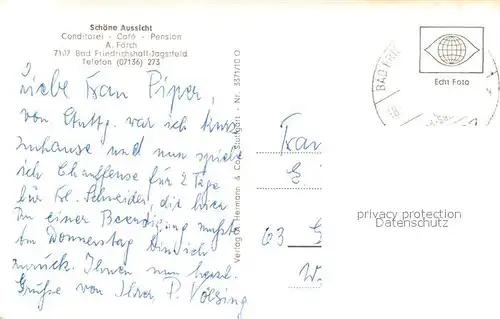 Schöne Aussicht
Conditorei - Café - Pension
A. Förch
7107 Bad Friedrichshall-Jagstfeld
Telefon (07136) 273
Liebe Frau Piper,
von Stuttg. war ich kurz
zuhause und nun spiele
ich Chauffeuse für 2 Tage
für Frl. Schneider, die hier
zu einer Beerdigung mußte
Am Donnerstag bin ich
zurück. Ihnen nun herzl.
Grüße von Ihrer P. Völsing
Verlag G. Hermann & Co., Stuttgart - Nr. 3371/10 O
Echt Foto
BAD FRIE
18
Frau
63 G
W.
privacy protection
Datenschutz